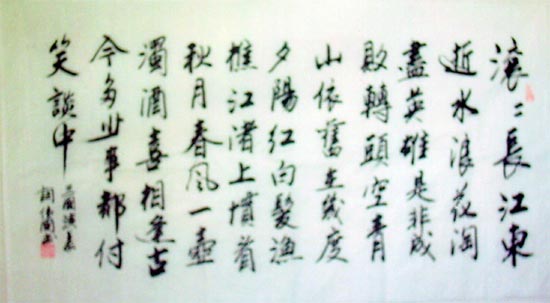 滚〻長江東
逝水浪花淘
盡英雄是非成
敗轉頭空青
山依舊在幾度
夕陽红白髮漁
樵江渚上慣看
秋月春風一壺
濁酒喜相逢古
今多少事都付
笑談中
三國演義
詞